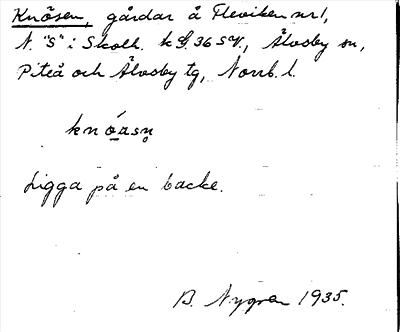 Knösen, gårdar å Fleviken nr 1,
N. "S" i Skolh. k 36 SV, Älvsby sn,
Piteå och Älvsby tg, Norrb. l.
knóasn̥
Ligga på en backe.
B. Nygren 1935.